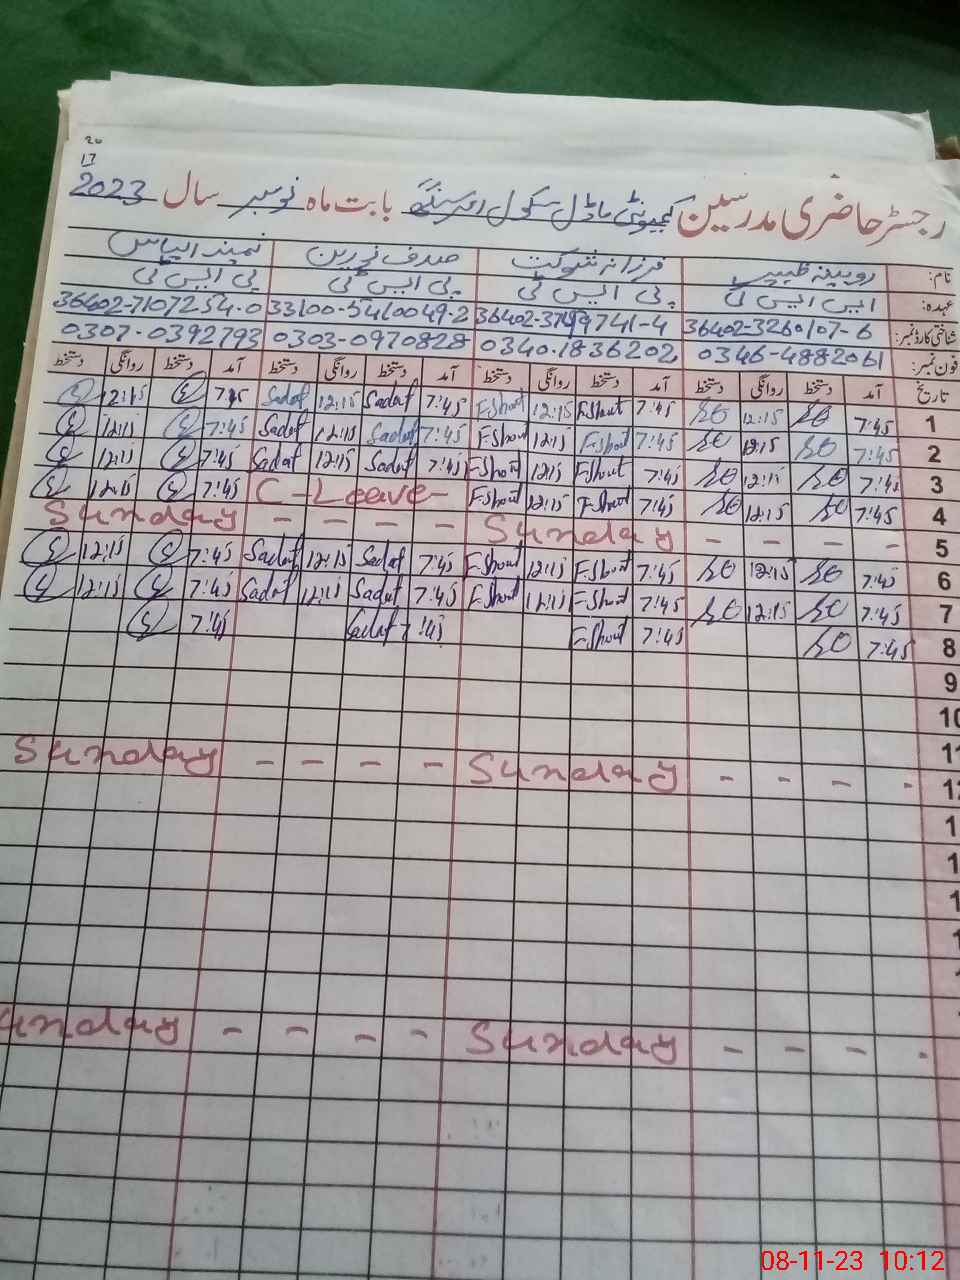 20
17
رجسٹر حاضری مدرسین کمیونٹی ماڈل سکول بابت ماہ نومبر سال 2023
نام: روبینہ طیبہ فرزانہ شوکت صدف نورین ثمینہ الیاس
عہدہ: ایس ایس ٹی پی ایس ٹی پی ایس ٹی پی ایس ٹی
شناختی کارڈ نمبر: 36402-3260107-6 36402-3749741-4 33100-5410049-2 36402-7107254-0
فون نمبر: 0346-4882061 0340-1836202 0303-0970828 0307-0392793
تاریخ آمد دستخط روانگی دستخط آمد دستخط روانگی دستخط آمد دستخط روانگی دستخط آمد دستخط روانگی دستخط
1 7:45 12:15 7:45 F.Shout 12:15 F.Shout 7:45 Sadaf 12:15 Sadaf 7:45 12:15
2 7:45 12:15 7:45 F.Shout 12:15 F.Shout 7:45 Sadaf 12:15 Sadaf 7:45 12:15
3 7:45 12:15 7:45 F.Shout 12:15 F.Shout 7:45 Sadaf 12:15 Sadaf 7:45 12:15
4 7:45 12:15 7:45 F.Shout 12:15 F.Shout C-Leave- 7:45 12:15
5 - - - - Sunday - - - - Sunday
6 7:45 12:15 7:45 F.Shout 12:15 F.Shout 7:45 Sadaf 12:15 Sadaf 7:45 12:15
7 7:45 12:15 7:45 F.Shout 12:15 F.Shout 7:45 Sadaf 12:15 Sadaf 7:45 12:15
8 7:45 7:45 F.Shout 7:45 Sadaf 7:45
9
10
11
12 - - - - Sunday - - - - Sunday
1
1
1
1
1
- - - - Sunday - - - - unday
08-11-23 10:12